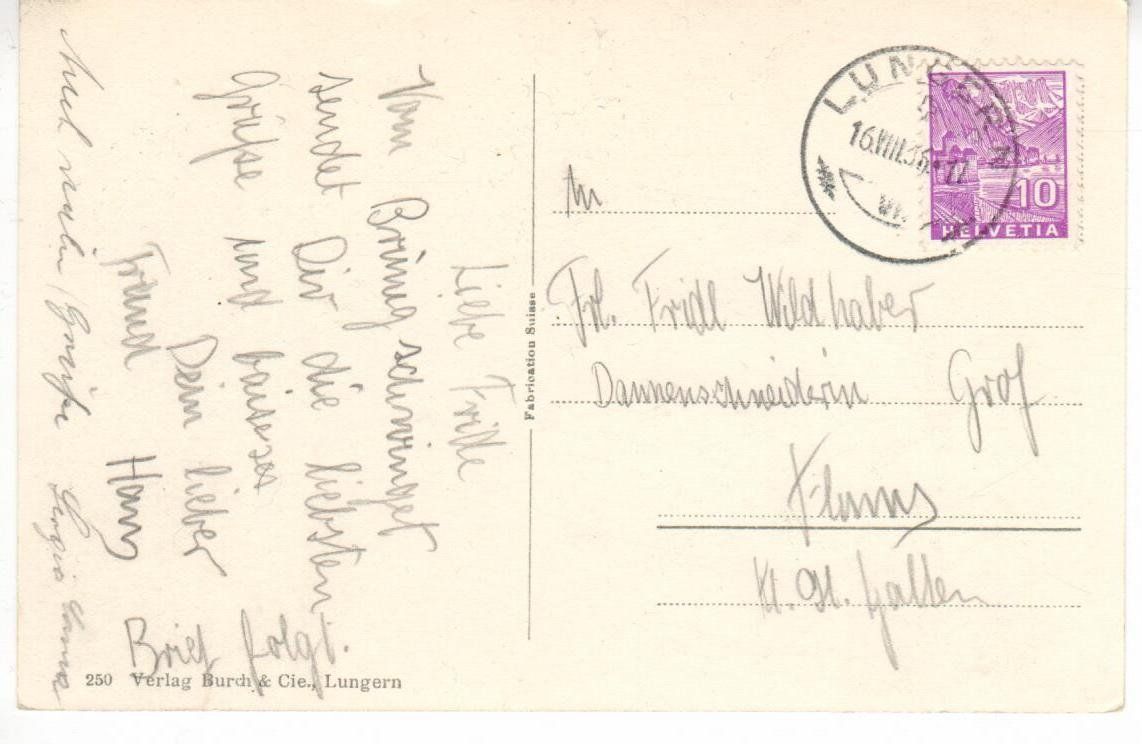 Liebe Fridl
Vom Brünigschwinget
sendet Dir die liebsten
Grüsse und baieses
Dein lieber
Freund Hans
Brief folgt.
Auch viele Grüsse
250 Verlag Burch & Cie., Lungern
Fabrication Suisse
LUNGERN
16.VIII.36
10
HELVETIA
An
Frl. Fridl Wildhaber
Dammenschneiderin Grof
Flums
Kt. St. Gallen